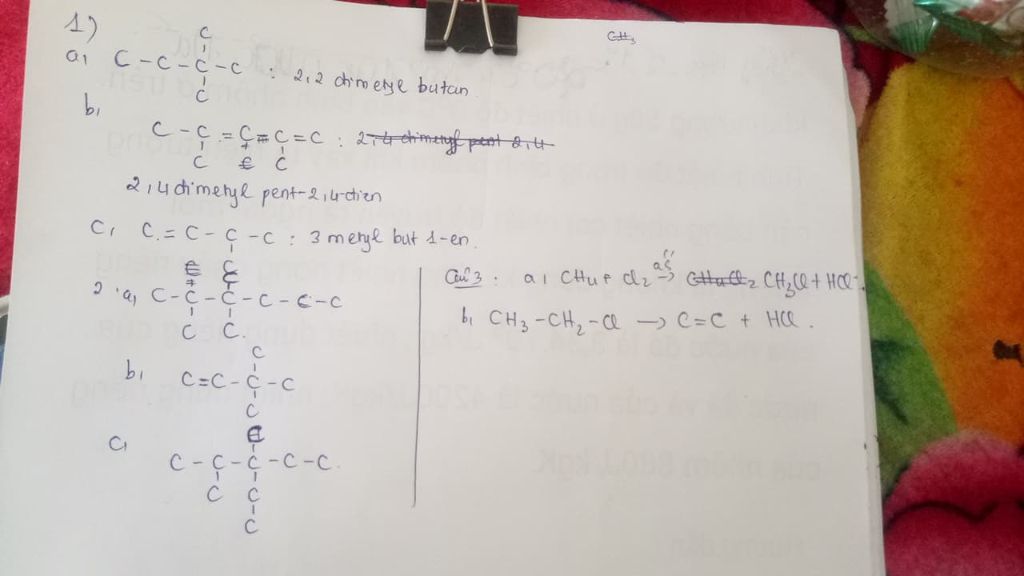 1)
C
a, C - C - C - C : 2,2 dimetyl butan
C
b,
C - C = C = C = C : 2,4 dimetyl pent 2,4
C C C
2,4 dimetyl pent-2,4-dien
C, C = C - C - C : 3 metyl but 1-en.
C C
2. a, C - C - C - C - C - C
C C
C
b, C=C - C - C
C
C
C, C - C - C - C - C.
C C
C
CH3
Câu 3 : a, CH4 + Cl2 as→ CH4Cl2 CH3Cl + HCl.
b, CH3 - CH2 - Cl → C=C + HCl.